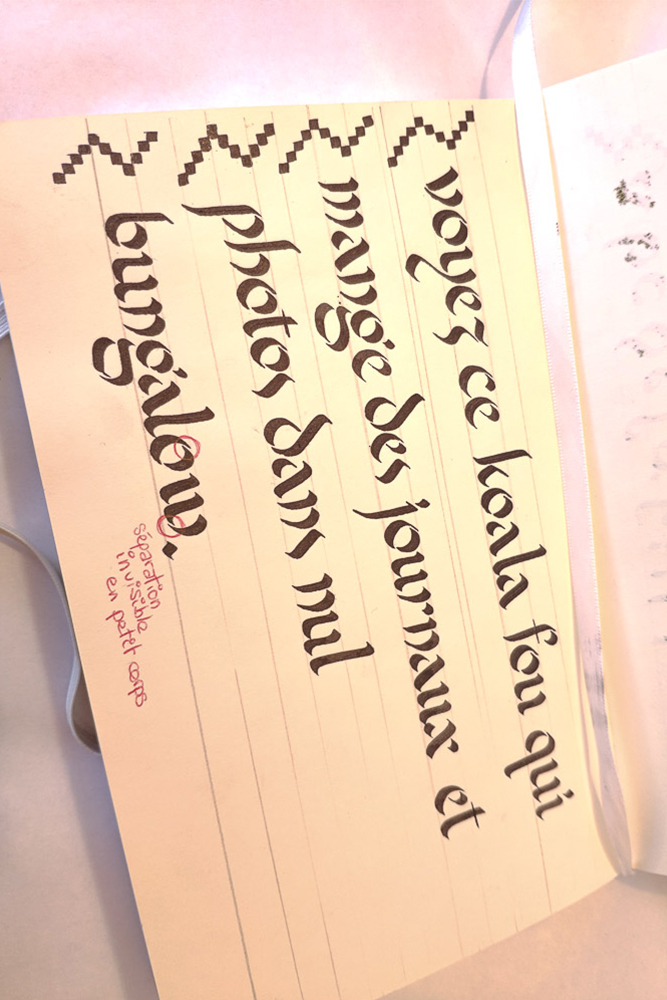 voyez ce koala fou qui
mange des journaux et
photos dans nul
bungalow.
séparation
invisible
en petit corps